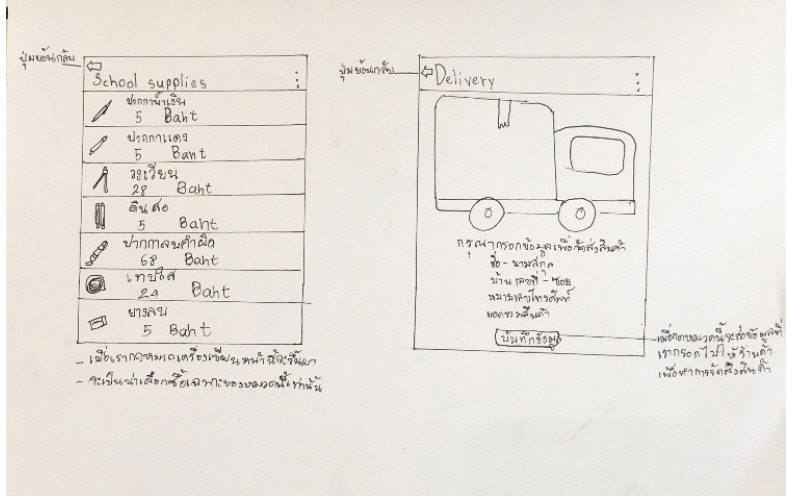 ปุ่มย้อนกลับ
School supplies
ปากกาน้ำเงิน
5 Baht
ปากกาแดง
5 Baht
วงเวียน
28 Baht
ดินสอ
5 Baht
ปากกาลบคำผิด
68 Baht
เทปใส
24 Baht
ยางลบ
5 Baht
- เมื่อเรากดหมวดเครื่องเขียนหน้านี้จะขึ้นมา
- จะเป็นหน้าเลือกซื้อเฉพาะของหมวดนี้เท่านั้น
ปุ่มย้อนกลับ
Delivery
กรุณากรอกข้อมูลเพื่อจัดส่งสินค้า
ชื่อ - นามสกุล
บ้านเลขที่ - ซอย
หมายเลขโทรศัพท์
ยอดรวมสินค้า
บันทึกข้อมูล
เมื่อกดหมวดนี้จะส่งข้อมูลที่
เรากรอกไปให้ร้านค้า
เพื่อทำการจัดส่งสินค้า